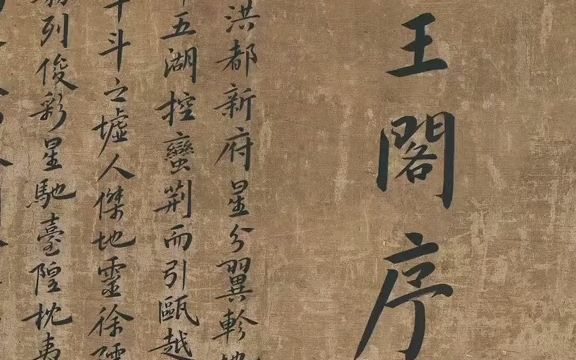 王閣序
洪都新府星分翼軫地
五湖控蠻荊而引甌越
牛斗之墟人傑地靈徐孺
霧列俊彩星馳臺隍枕夷